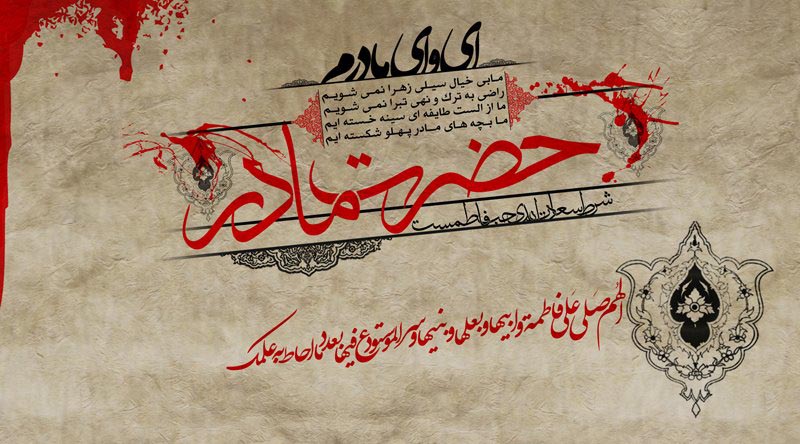 ای وای مادرم
مابی خیال سیلی زهرا نمی شویم
راضی به ترک و نهی تبرا نمی شویم
ما از الست طایفه ای سینه خسته ایم
ما بچه های مادر پهلو شکسته ایم
حضرت مادر
شرط سعادت ابدی حب فاطمست
اللهم صلی علی فاطمة و ابیها و بعلها و بنیها و سر المستودع فیها بعدد ما احاط به علمک